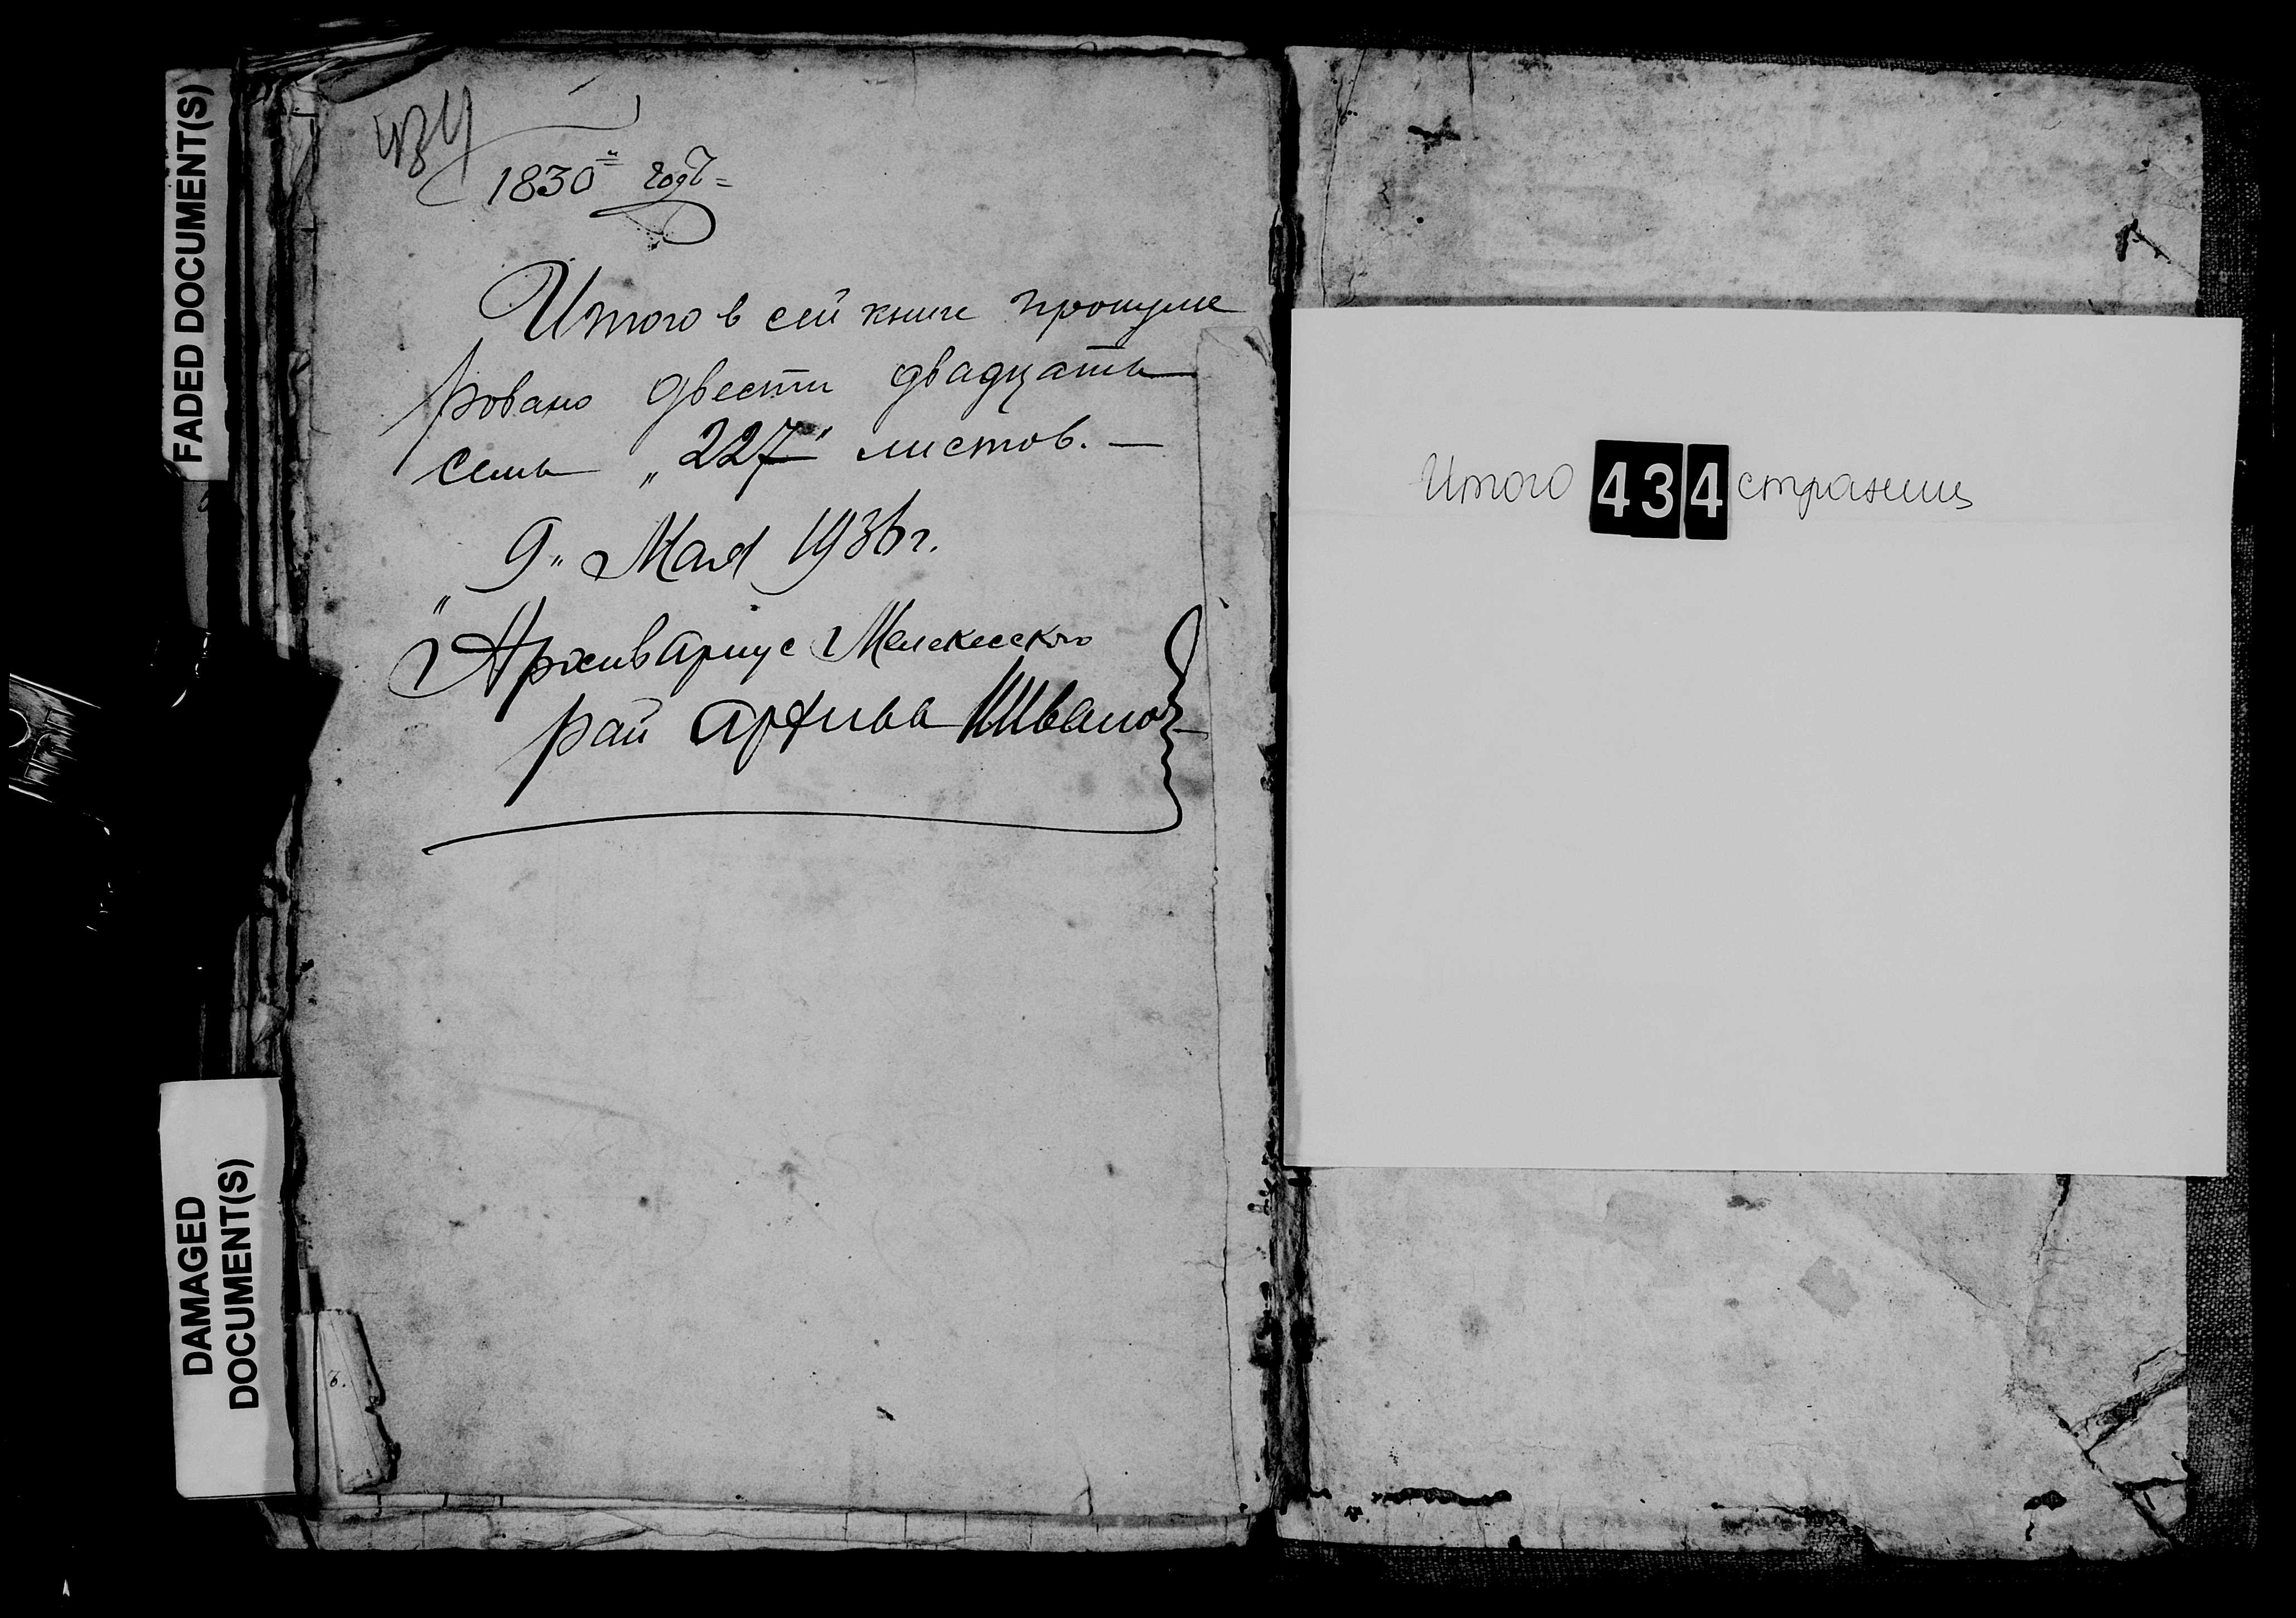 FADED DOCUMENT(S)
434
1830й годъ=
Итого в сей книге пронуме
ровано двести двадцать
семь „227" листов. —
„9„ Мая 1936 г.
Архивариус Мелекесского
рай архива
Итого 434 страниц
DAMAGED
DOCUMENT(S)